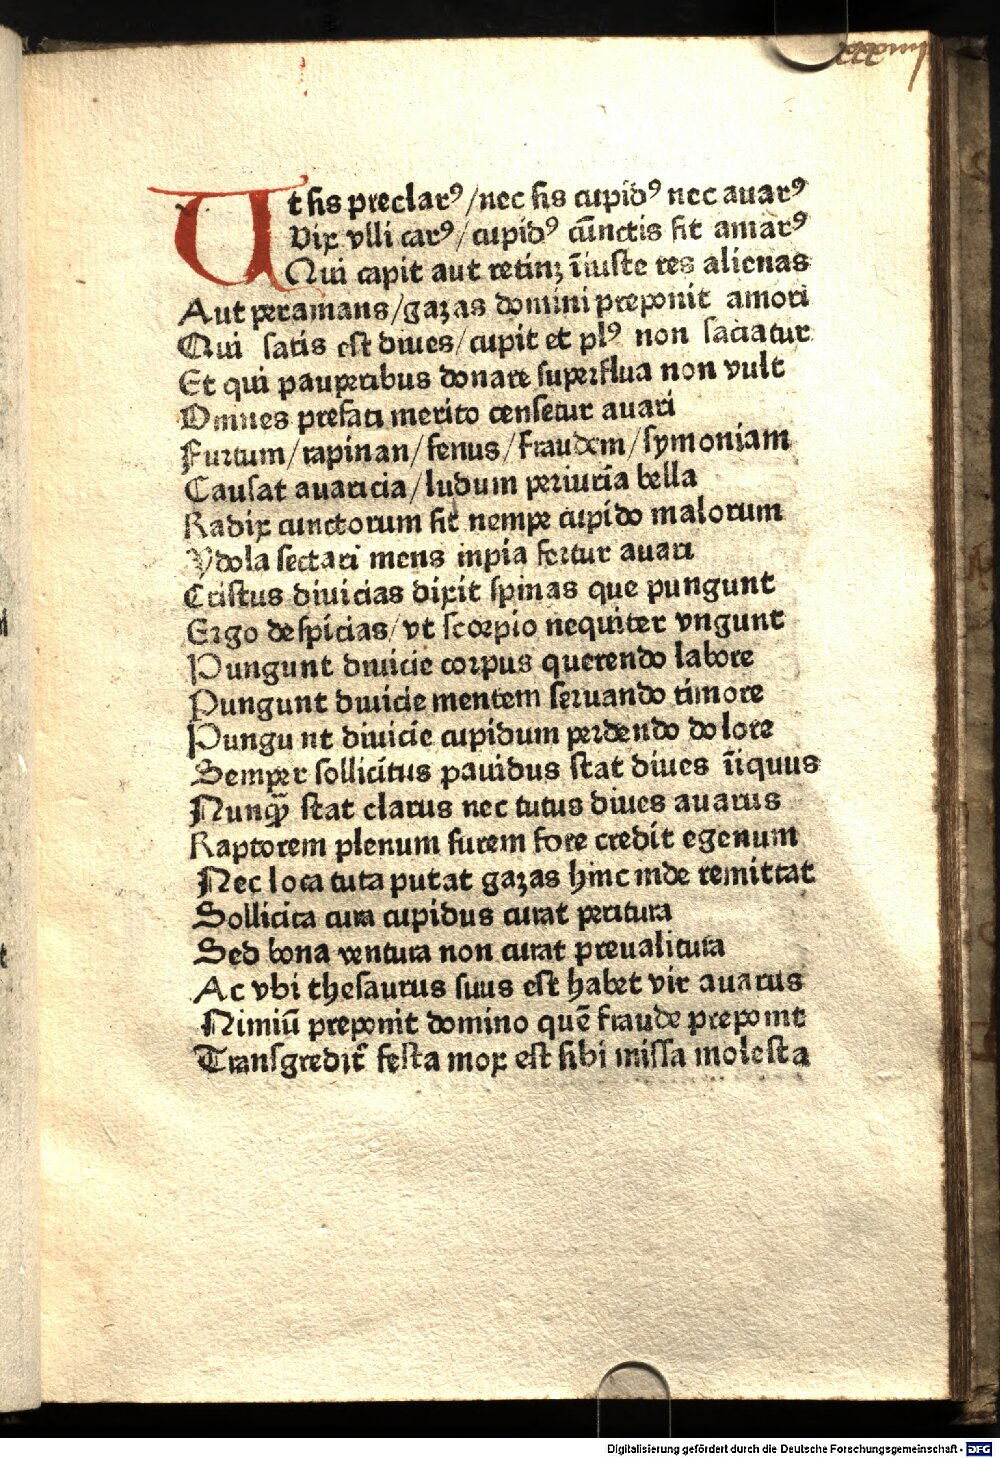 Ut sis preclarꝰ/nec sis cupidꝰ nec auarꝰ
Vix vlli carꝰ/cupidꝰ cūnctis sit amarꝰ
Qui capit aut retinꝫ īiuste res alienas
Aut peramans/gazas domini preponit amori
Qui satis est diues/cupit et plꝰ non saciatur
Et qui pauperibus donare superflua non vult
Omnes prefati merito censetur auari
Furtum/rapinan/fenus/fraudem/symoniam
Causat auaricia/ludum periuria bella
Radix cunctorum sit nempe cupido malorum
Ydola sectari mens inpia fertur auari
Cristus diuicias dixit spinas que pungunt
Ergo despicias/vt scorpio nequiter vngunt
Pungunt diuicie corpus querendo labore
Pungunt diuicie mentem seruando timore
Pungu nt diuicie cupidum perdendo dolore
Semper sollicitus pauidus stat diues īiquus
Nunqꝫ̄ stat clarus nec tutus diues auarus
Raptorem plenum furem fore credit egenum
Nec loca tuta putat gazas hinc inde remittat
Sollicita cura cupidus curat peritura
Sed bona ventura non curat preualitura
Ac vbi thesaurus suus est habet vir auarus
Nimiū preponit domino quē fraude preponit
Transgredit᷑ festa mox est sibi missa molesta
Digitalisierung gefördert durch die Deutsche Forschungsgemeinschaft - DFG